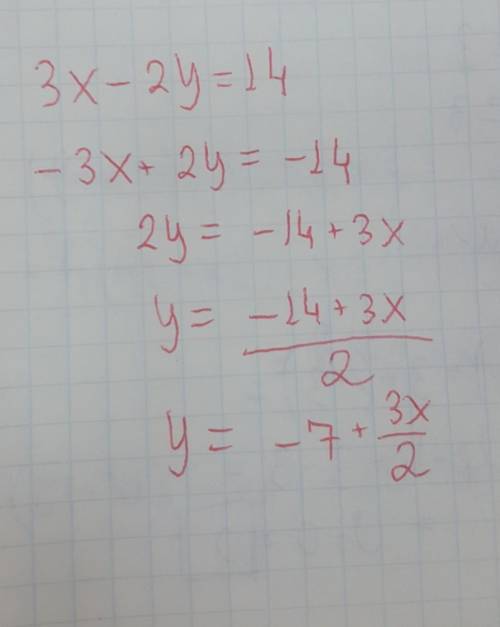 3x - 2y = 14
- 3x + 2y = -14
2y = -14 + 3x
y = \frac{-14 + 3x}{2}
y = -7 + \frac{3x}{2}